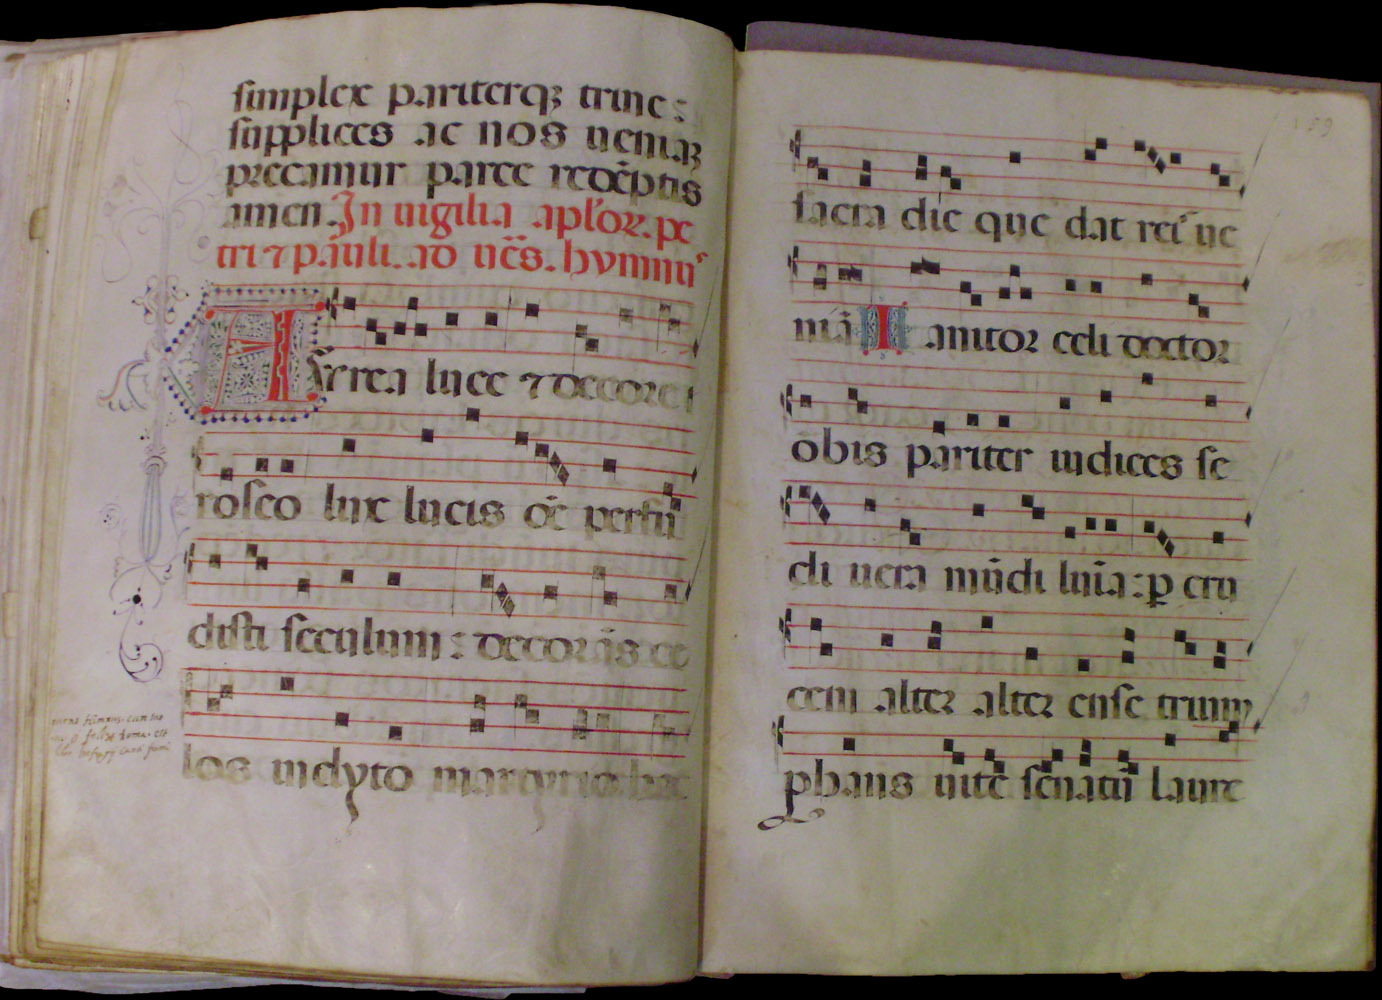 simplex pariterq; trine:
supplices ac nos ueniaq;
precamur parce redēptis
amen. In uigilia apl'oꝝ. pe
tri ⁊ pauli. ad ūes̄. hymnus
Aurea luce ⁊ decore
roseo lux lucis oē perfu
disti seculum: decorās ce
los inclyto martyrio hac
sacra die que dat rei᷑ ue
niā Ianitor celi doctor
obis pariter iudices se
cli uera mūdi luīa: ꝑ cru
cem alter alter ense trium
phans uite senatū laure